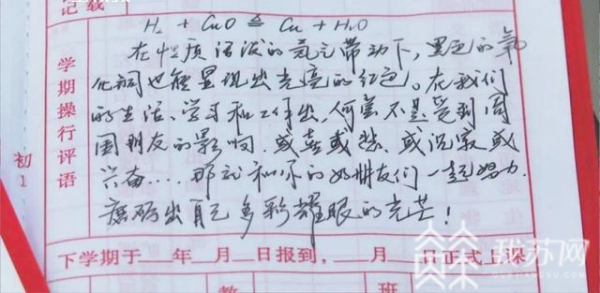 记载
H₂ + CuO ≜ Cu + H₂O
在性质活泼的氢气带动下，黑色的氧
化铜也能显现出光亮的红色。在我们
的生活、学习和工作出，何尝不是受到周
围朋友的影响，或喜或愁、或沉寂或
兴奋……那就和你的好朋友们一起努力，
磨砺出自己多彩耀眼的光芒！
学期操行评语
初1
下学期于 年 月 日报到， 月 日正式上课
教
班
我苏网